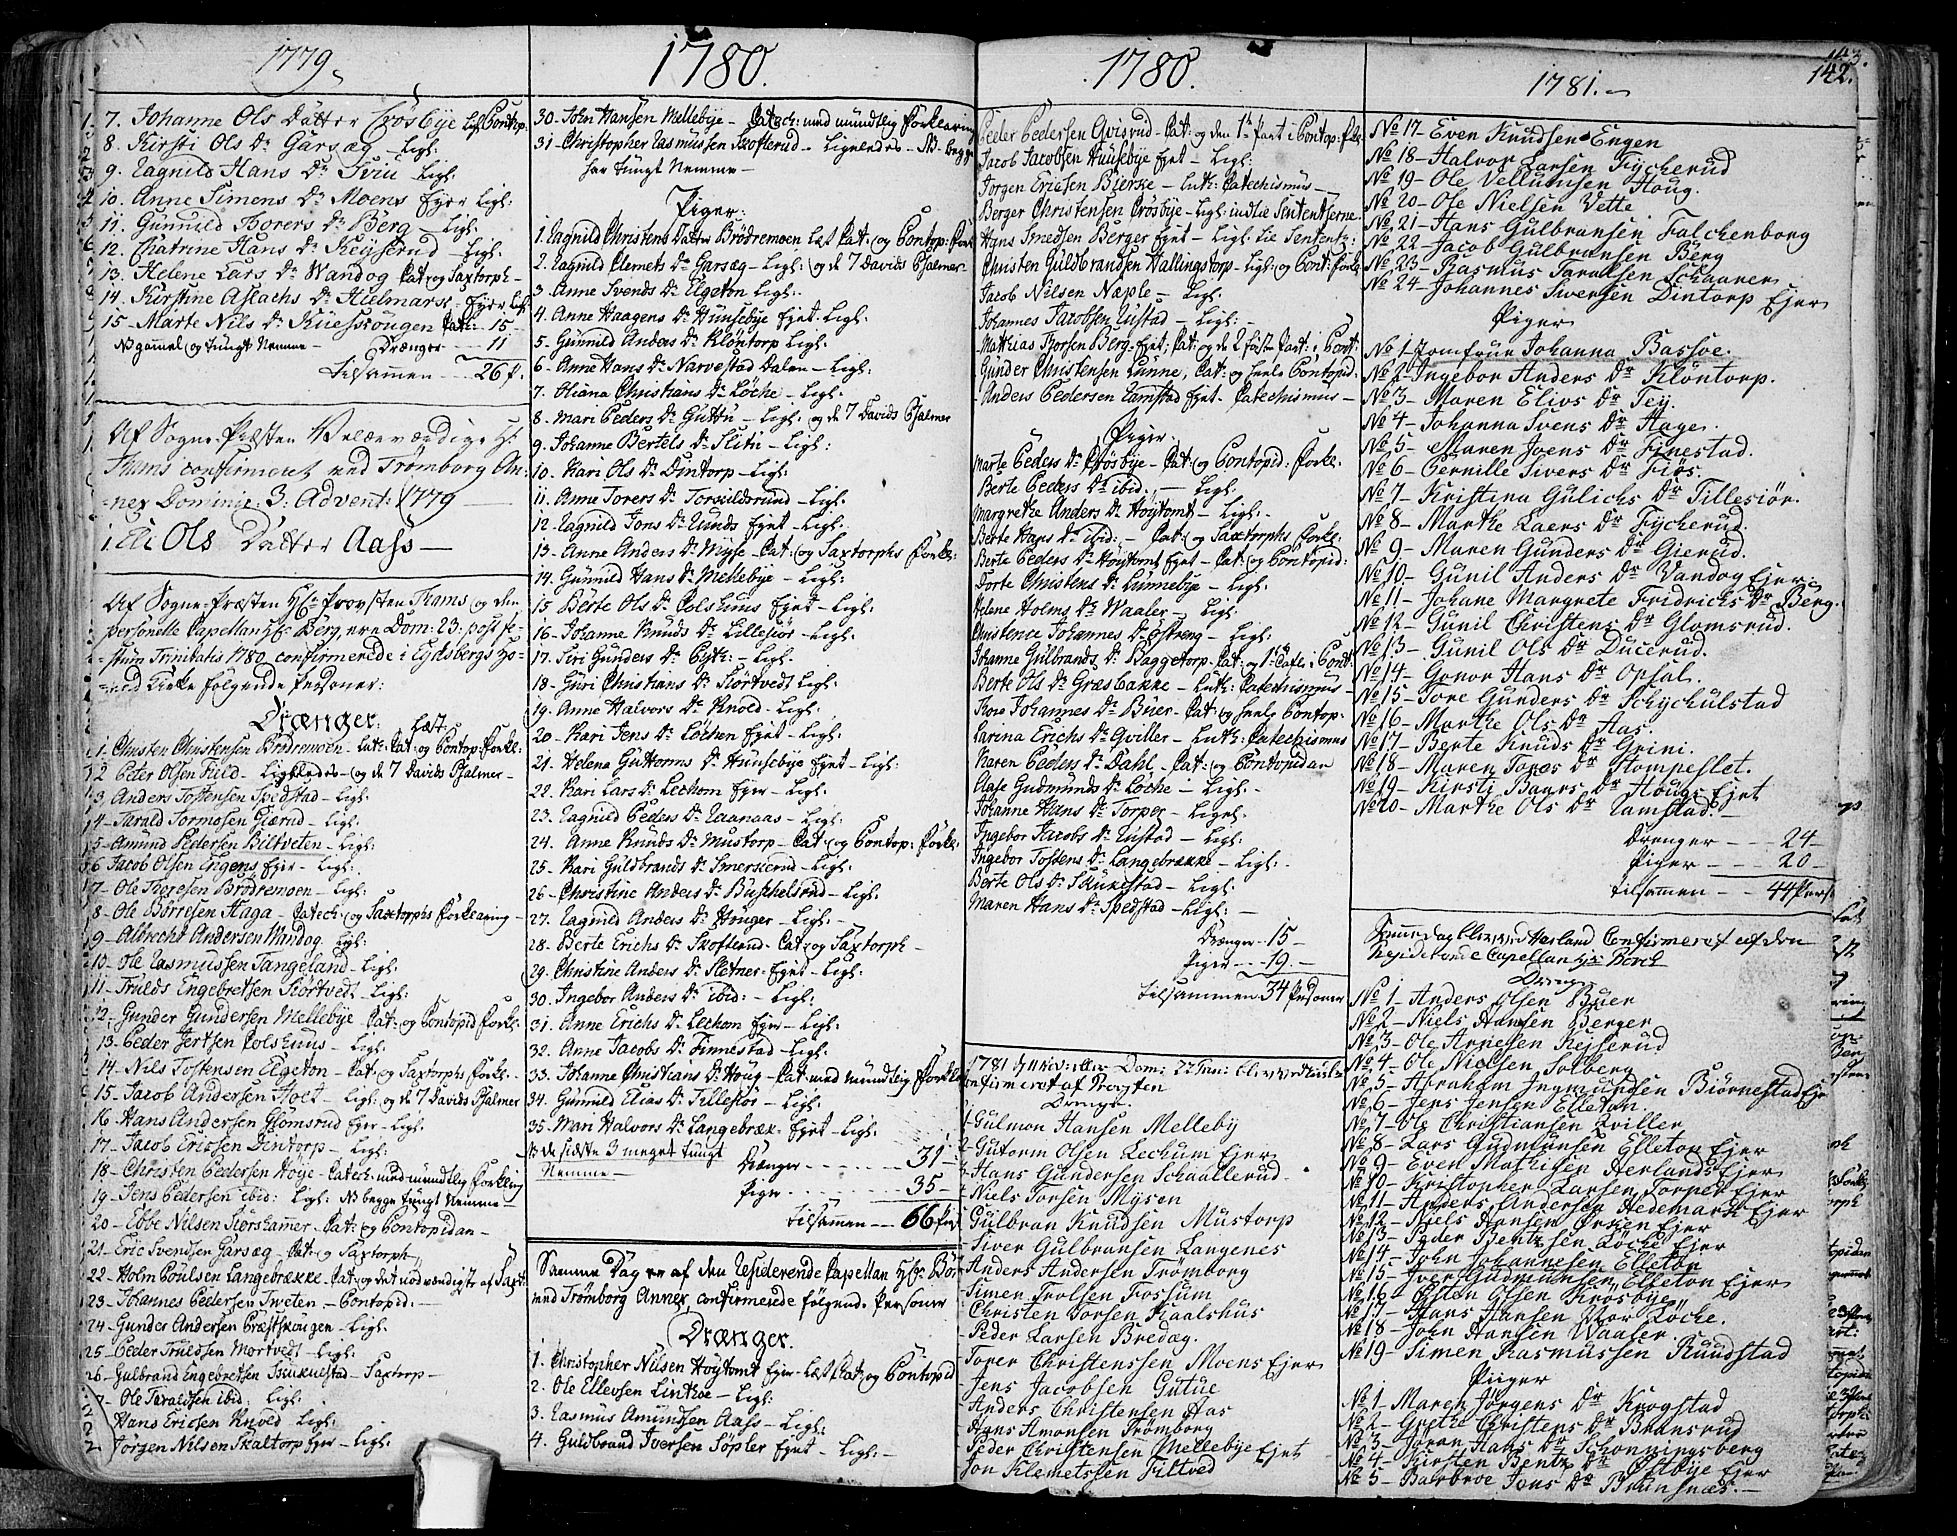 1779
7. Johanne Ols Datter Crösbye Ligl. Pontop:
8. Kirsti Ols Dr Garsæg – Ligl:
9. Ragnild Hans Dr Sviu – Ligl:
10. Anne Simens Dr Moens Ejer Ligl:
11. Gunnild Torers Dr Berg – Ligl:
12. Chatrine Hans Dr Keyserud – Ligl:
13. Helene Lars Dr Wandog Cat: og Saxtorph –
14. Kirstine Aslachs Dr Hielmark – Ejer Ligl
15. Marte Nils Dr Küessrongen Cat: – 15
NB gammel og tungt Nemme – Drænger – 11
Tilsammen – 26 p.
Af Sogne-Præsten Velærværdige Hr
Thams confirmeret ved Trömborg An-
nex Dominic: 3. Advent: 1779
1. Eli Ols Datter Aass –
Af Sogne-Præsten Hr Provsten Thams og den
personelle Capellan Hr Berg, ere Dom: 23: post fe-
stum Trinitatis 1780 confirmerede i Eydsbergs Ho-
ved Kirke følgende Personer:
Drænger: Læst
1. Christen Christensen Brödremoen – Luth: Cat: og Pontop: Forkl:
2 Peter Olsen Field – Ligeledes – og de 7 Davids Psalmer –
3 Anders Tostensen Spedstad – Ligl:
4 – Tarald Tormosen Giærud – Ligl:
5 – Amund Pedersen Biltveten – Ligl:
6 Jacob Olsen Engens Ejer – Ligl:
7 – Ole Theresen Brödremoen – Ligl:
8 – Ole Börresen Haga – Catech: og Saxtorphs Forklaring –
9 – Albrecht Andersen Wandog Ligl:
10 – Ole Rasmussen Tangeland – Ligl:
11 – Trulds Engebretsen Skörtvedt – Ligl:
12. Gunder Gundersen Mellebye – Cat: og Pontopid Forkl:
13 – Peder Jertsen Colshuus – Ligl:
14 – Nils Tostensen Elgeton – Cat: og Saxtorphs Forkl: –
15 – Jacob Andersen Hoel – Ligl: og de 7 Davids Psalmer
16 Hans Andersen Glomsrud Ejer – Ligl:
17 – Jacob Ericsen Dintorp – Ligl:
18 – Christen Pedersen Höye – Catech: med mundtlig Forkling
19 – Jens Pedersen ibid: Ligl: NB begge tungt Nemme –
20 – Ebbe Nilsen Skörshamer – Cat: og Pontopidan –
21 – Eric Svendsen Garsæg – Cat: og Saxtorph –
22 – Holm Poulsen Langebrække – Cat: og det nødvendigste af Saxt:
23 – Johannes Pedersen Tweten – Pontopid: –
24 – Gunder Andersen Præstskougen – Ligl:
25 – Peder Truldsen Mortvedt – Ligl:
26 – Gulbrand Engebretsen Skukulstad – Saxtorp –
– Ole Taraldsen ibid: Ligl:
Hans Ericsen Knold Ligl:
Jörgen Nilsen Skaltorp Ejer – Ligl:
1780.
30 – John Hansen Mellebye – Catech: med mundtlig Forklaring
31 – Christopher Rasmussen Skofterud – Ligeledes – NB. begge
har tungt Nemme –
Piger:
1. Ragnild Christens Datter Brödremoen Læst Cat: og Pontop: Forkl
2. Ragnild Clemets Dr Garsæg – Ligl: og de 7 Davids Psalmer
3 – Anne Svends Dr Elgeton Ligl:
4 – Anne Haagens Dr Hunsebye Ejet – Ligl:
5 – Gunnild Anders Dr Klöntorp Ligl:
6 – Anne Hans Dr Narvestad Dalen – Ligl:
7 – Oliana Christians Dr Löche – Ligl:
8 – Mari Peders Dr Guttu – Ligl: og de 7 Davids Psalmer
9 – Johanne Bertels Dr Slitu – Ligl:
10 – Kari Ols Dr Dintorp – Ligl:
11 – Anne Torers Dr Torsildsrund – Ligl:
12 – Ragnild Jons Dr Runds Ejet – Ligl:
13 – Anne Anders Dr Myse – Cat: og Saxtorphs Forkl:
14 – Gunnild Hans Dr Mellebye – Ligl:
15 Berte Ols Dr Colshuus Ejet – Ligl:
16 – Johanne Knuds Dr Lillesiör – Ligl:
17 – Siri Gunders Dr Byth: – Ligl:
18 – Guri Christians Dr Skörtvedt Ligl:
19 – Anne Halvors Dr Knold – Ligl:
20 – Kari Jens Dr Löchen Ejet – Ligl:
21 – Helena Guttorms Dr Hunsebye Ejet – Ligl:
22 – Kari Lars Dr Lechom Ejer – Ligl:
23 – Ragnild Peders Dr Raanaas – Ligl:
24 – Anne Knuds Dr Mustorp – Cat: og Pontop: Forkl:
25 – Kari Guldbrands Dr Smerskerud – Ligl:
26 – Christine Anders Dr Buschelsrud – Ligl:
27 – Ragnild Anders Dr Houger – Ligl: –
28 – Berte Erichs Dr Skofterud – Cat: og Saxtorph –
29 – Christine Anders Dr Sletner – Ejet – Ligl:
30 – Ingebor Anders Dr ibid: – Ligl:
31 – Anne Erichs Dr Lechom Ejer – Ligl:
32 – Anne Jacobs Dr Finnestad – Ligl:
33 – Johanne Christians Dr Houg – Cat. med mundtlig Forkl:
34 – Gunnild Elias Dr Tillesiör – Ligl:
35 – Mari Halvors Dr Langebræk – Ejet – Ligl:
NB de sidste 3 meget tungt
Nemme –
Drænger – 31 –
Piger – 35 –
Tilsammen – 66 Pers
Samme Dag er af den Residerende Capellan Hr Bör
ved Trömborg Annex confirmerede følgende Personer
Drænger.
1. Christopher Nilsen Höytomt Ejer – Læst Cat: og Pontopid
2. Ole Ellevsen Linthoe – Ligl:
3. Rasmus Amundsen Aass – Ligl:
4. Guldbrand Iversen Sopler Ejet – Ligl: –
1780.
Peder Pedersen Qvisrud – Cat: og den 1te Part i Pontop: Forkl
Jacob Jacobsen Huusebye Ejet – Ligl:
Jörgen Ericsen Bierke – Luth: Catechismus –
Berger Christensen Crösbye – Ligl: indtil Sententserne
Hans Smedsen Berger Ejet – Ligl: til Sentents:
Christen Guldbrandsen Vallingstorp – Ligl: og Pont: Forkl.
Jacob Nilsen Næple – Ligl:
Johannes Jacobsen Rustad – Ligl:
Mathias Thorsen Berg – Ejet, Cat: og de 2 første Part: i Pont:
Gunder Christensen Lunne, Cat: og heele Pontopid:
Anders Pedersen Ramstad Ejet – Catechismus –
Piger.
Marte Peders Dr Crösbye – Cat: og Pontopid: Forkl:
Berte Peders Dr ibid: – Ligl:
Margrethe Anders Dr Höytomt – Ligl:
Berte Hans Dr ibid: – Cat: og Saxtorphs Forkl:
Berte Peders Dr Höytomt Ejet – Cat: og Pontopid:
Dorte Christens Dr Lunnebye – Ligl:
Helene Holms Dr Waaler – Ligl:
Christence Johannes Dr Östreng – Ligl:
Johanne Gulbrands Dr Baggetorp – Cat: og 1te Parte i Pont:
Berte Ols Dr Græsbakke – Luth: Catechismus –
Tore Johannes Dr Buer – Cat: og heele Pontop:
Carina Erichs Dr Qviller – Luth: Catechismus
Karen Peders Dr Dahl – Cat: og Pontopidan
Aase Gudmunds Dr Löche – Ligl:
Johanne Hans Dr Torper – Ligel:
Ingebor Jacobs Dr Rustad – Ligl:
Ingebor Tostens Dr Langebrække – Ligl:
Berte Ols Dr Skukestad – Ligl:
Maren Hans Dr Spedstad – Ligl: –
Drænger – 15 –
Piger – 19 –
Tilsammen 34 Personer
1781 Dom: 22 Trin: blev ved
Confirmeret af Provsten
Drenge
Gulmon Hansen Melleby
Gutorm Olsen Leckum Ejer
Hans Gundersen Schaallerud
Niels Torsen Mysen
Gulbran Knudsen Mustorp
Siver Gulbransen Langenes
Anders Andersen Trömborg
Simen Trolsen Fossum
Christen Torsen Kaalshus
Peder Larsen Bredag.
Torer Christenssen Moens Ejer
Jens Jacobsen Gutue
Anders Christensen Has
Hans Amonsen Trömborg
Peder Christensen Mellebye Ejet
Jon Klemetssen Tiltved
1781. –
143.
142.
No 17 – Even Knudsen Engen
No 18 – Halvor Larsen Fycherud
No 19 – Ole Vellumsen Houg.
No 20 – Ole Nielsen Vette
No 21 – Hans Gulbransen Falchenborg
No 22 – Jacob Gulbransen Berg
No 23 – Rasmus Taralsen Schaaren
No 24 – Johannes Swensen Dintorp Ejer
Piger
No 1 – Jomfrue Johanna Bassøe.
No 2 – Ingebor Anders Dr Klöntorp.
No 3 – Maren Elivs Dr Tey.
No 4 – Johanna Svens Dr Hage.
No 5 – Maren Joens Dr Finestad.
No 6 – Pernille Sivers Dr Fiös.
No 7 – Kristina Gulichs Dr Tillesiör.
No 8 – Marthe Laers Dr Fycherud.
No 9 – Maren Gunders Dr Gierud.
No 10 – Gunil Anders Dr Vandog Ejer.
No 11 – Johane Margrete Fridrichs Dr Berg.
No 12 – Gunil Christens Dr Glomsrud.
No 13 – Gunil Ols Dr Ducerud.
No 14 – Gonor Hans Dr Opsal.
No 15 – Tore Gunders Dr Schychulstad
No 16 – Marthe Ols Dr Aas.
No 17 – Berte Knuds Dr Grini.
No 18 – Maren Tores Dr Stompeslet.
No 19 – Kirsti Baars Dr Houg Ejet
No 20 – Marthe Ols Dr Ramstad. –
Drenger – 24 –
Piger – 20 –
Tilsammen – 44 Pers
Samme dag blev ved Herland Confirmeret af den
Residerende Capellan Hr: Borch
Drenge
No 1 – Anders Olsen Buer
No 2 – Niels Hansen Berger
No 3 – Ole Arnesen Kejserud
No 4 – Ole Nielsen Solberg
No 5 – Abraham Ingmundsen Biörnestad Eje
No 6 – Jens Jensen Elleton
No 7 – Ole Christiansen Qviller
No 8 – Lars Gudmunsen Elleton Ejer
No 9 – Even Mathisen Herlands Ejer
No 10 – Kristopher Larsen Torper Ejer
No 11 – Anders Andersen Hedemark Ejer
No 12 – Niels Hansen Örken Ejer
No 13 – Peder Bentzsen Löche Ejer
No 14 – John Johannesen Elleton
No 15 – Iver Gudmunsen Elleton Ejer
No 16 – Östen Olsen Krösbye
No 17 – Hans Hansen Vor Löche.
No 18 – John Hansen Waaler.
No 19 – Simen Rasmussen Ruudstad
Piger
No 1 – Maren Jörgens Dr Krogstad
No 2 – Grethe Christens Dr Bransrud
No 3 – Jöran Hans Dr Schonningsberg
No 4 – Kirsten Bentz Dr Östbye Ejer
No 5 – Barbroe Jons Dr Brunsnæs. –